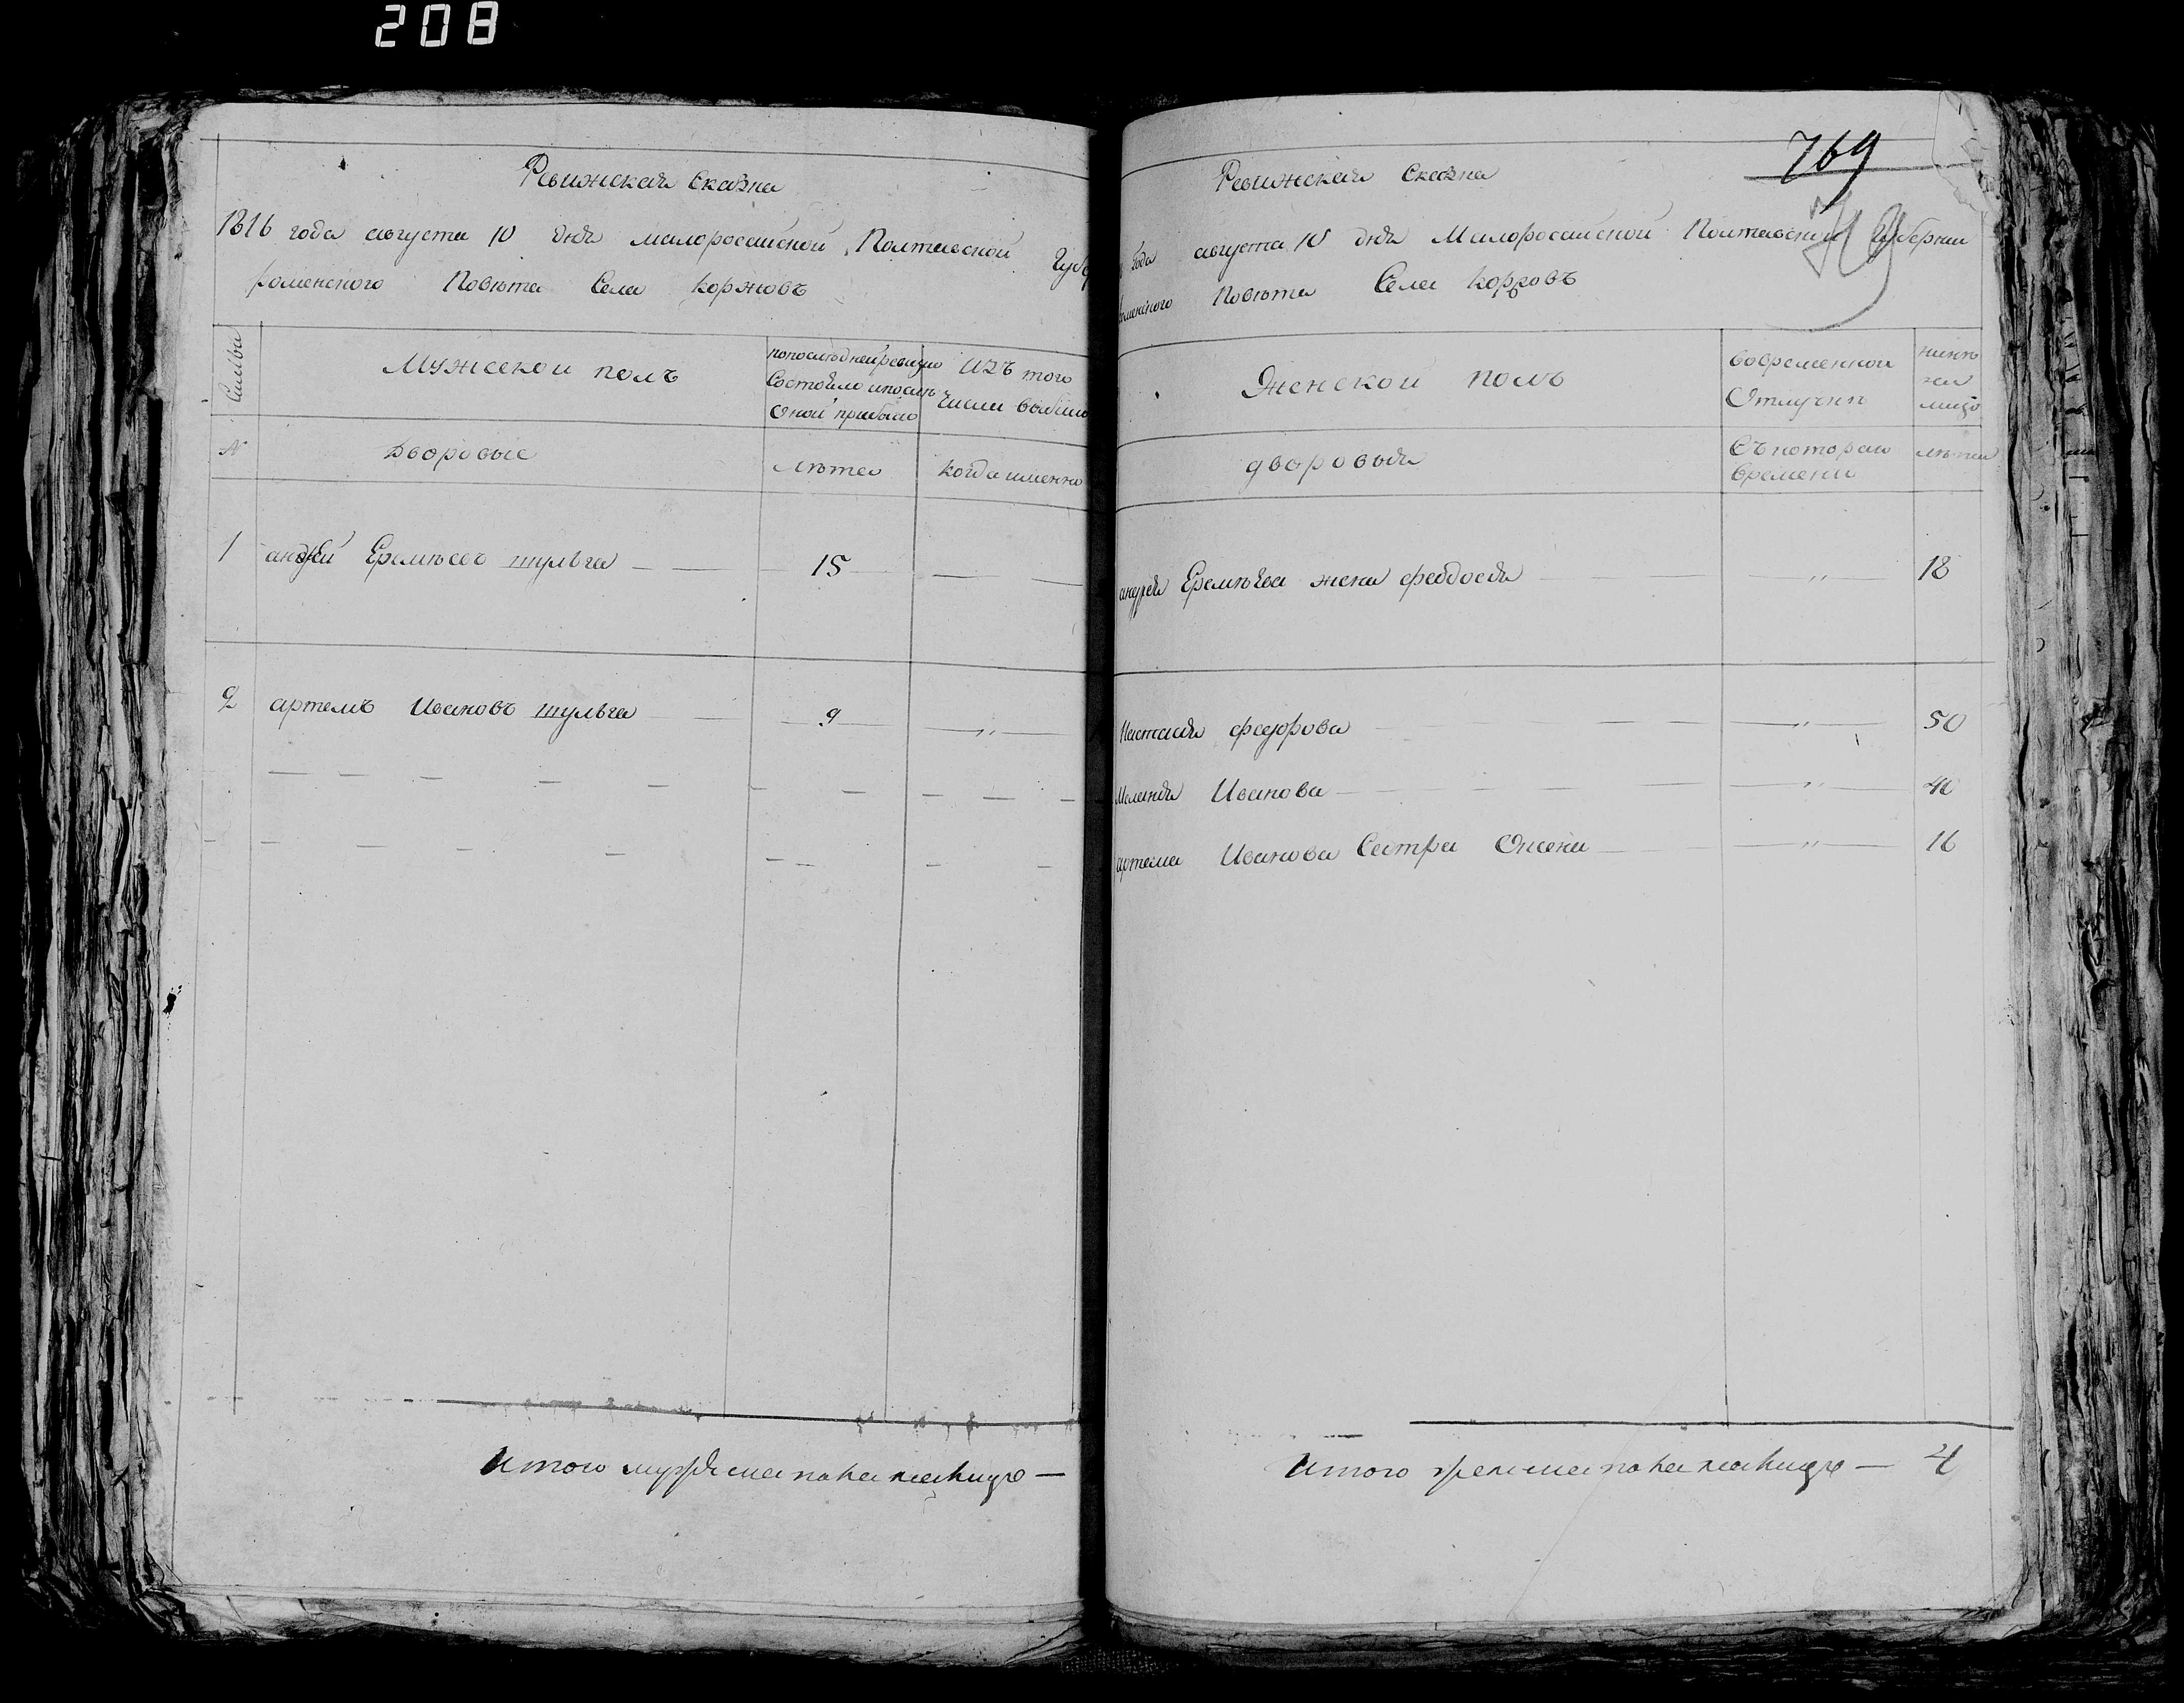 208
Ревижская Сказка
1816 года августа 10 дня малоросайской Полтавской Губе
роменского Повѣта Села Коржовъ
Семьи
Мужеской полъ
попоследней ревизио
Состояло ипосль
Оной прибыло
изъ того
числа выбыло
№
Дворовые
Лѣта
когда имянно
1 андрей Еремѣевъ шульга 15
2 артемъ Ивановъ шульга 9
Итого мужеска пола налицо
769
Ревижская Сказка
года августа 10 дня Малоросайской Полтавской Губернии
роменского Повѣта Села Коржовъ
Женской полъ
вовременной
Отлучкѣ
нынѣ
на
лицо
дворовыя
Съкоторои
времени
лѣта
андрея Еремѣева жена феодосия " 18
Настасия федорова " 50
Мелания Иванова " 40
артема Иванова Сестра Оксена " 16
Итого женска пола налицо 4